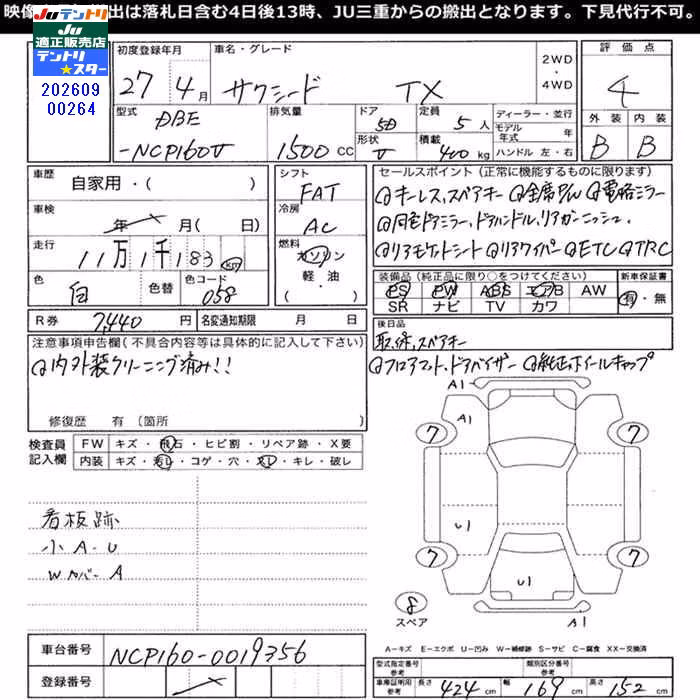 映像 出は落札日含む4日後13時、JU三重からの搬出となります。下見代行不可。
JUテントリ
JU 適正販売店
テントリ★スター
202609
00264
初度登録年月 車名・グレード 2WD・4WD 評価点
27年 4月 サクシード TX 4
型式 排気量 ドア 定員 ディーラー・並行 外装 内装
DBE 5D 5人 モデル年式 年 B B
-NCP160V 1500CC 形状 V 積載 400kg ハンドル 左・右
車歴 自家用・( ) シフト FAT
車検 年 月( 日) 冷房 AC
走行 11万1千183km 燃料 ガソリン 軽・油 ( )
色 白 色替 色コード 058
R券 7,440円 名変通知期限 月 日
セールスポイント(正常に機能するものに限ります)
キーレス,スペアキー 全席P/W 電格ミラー
同色ドアミラー,ドアハンドル,リアガーニッシュ.
リアモケットシート リアワイパー ETC TRC
装備品(純正品に限り○をつけてください) 新車保証書
PS PW ABS エアB AW 有・無
SR ナビ TV カワ
後日品
取,保,スペアキー
フロアマット,ドアバイザー 純正ホイールキャップ
注意事項申告欄(不具合内容等は具体的に記入して下さい)
内外装クリーニング済み!!
修復歴 有(箇所 )
検査員記入欄 FW キズ・飛石・ヒビ割・リペア跡・X要
内装 キズ・汚レ・コゲ・穴・スレ・キレ・破レ
看板跡
小A・U
Wカバー A
A1
A1
7 7
U1
7 7
U1
8
スペア
A1
A=キズ E=エクボ U=凹み W=補修跡 S=サビ C=腐食 XX=交換済
車台番号 NCP160-0019356
登録番号
型式指定番号参考 類別区分番号参考
車庫証明用参考 長さ 424cm 幅 169cm 高さ 152cm